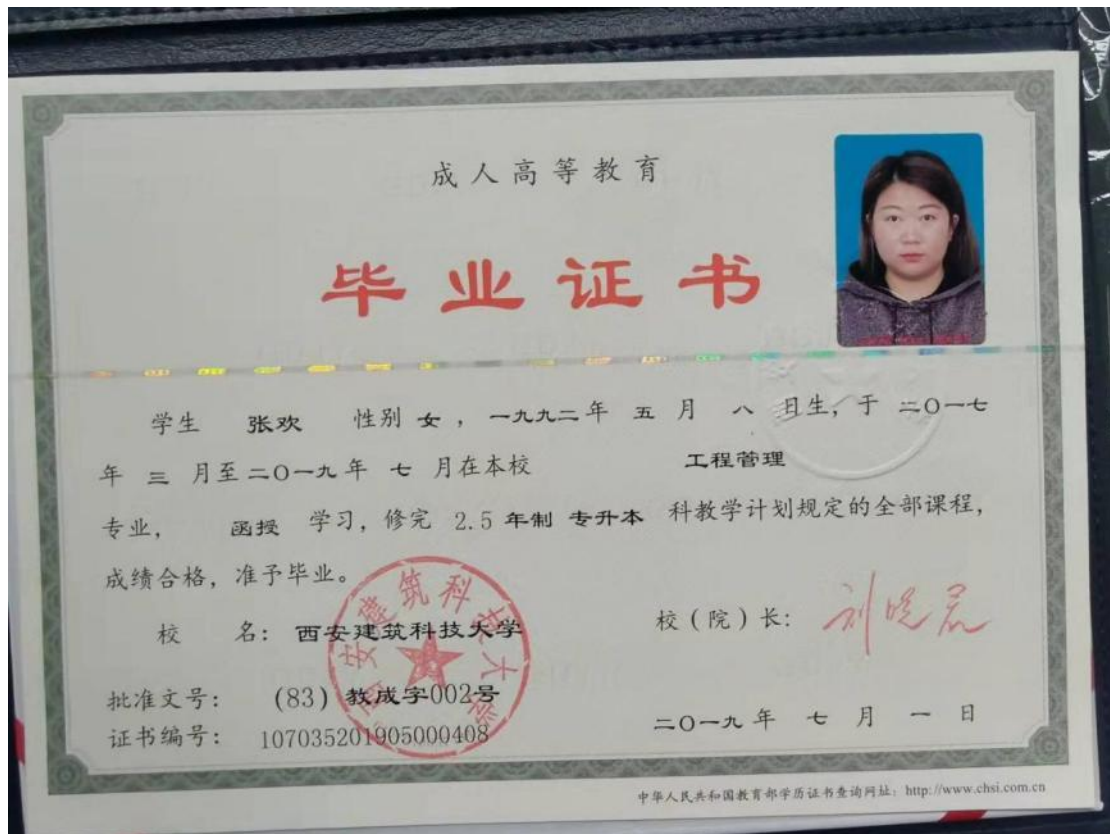 成人高等教育
毕业证书
学生 张欢 性别 女 ，一九九二年 五 月 八 日生，于 二〇一七
年 三 月至二〇一九年 七 月在本校 工程管理
专业， 函授 学习，修完 2.5 年制 专升本 科教学计划规定的全部课程，
成绩合格，准予毕业。
校 名： 西安建筑科技大学 校（院）长： 刘晓君
西安建筑科技大学
批准文号： (83) 教成字002号
二〇一九年 七 月 一 日
证书编号： 107035201905000408
中华人民共和国教育部学历证书查询网址：http://www.chsi.com.cn